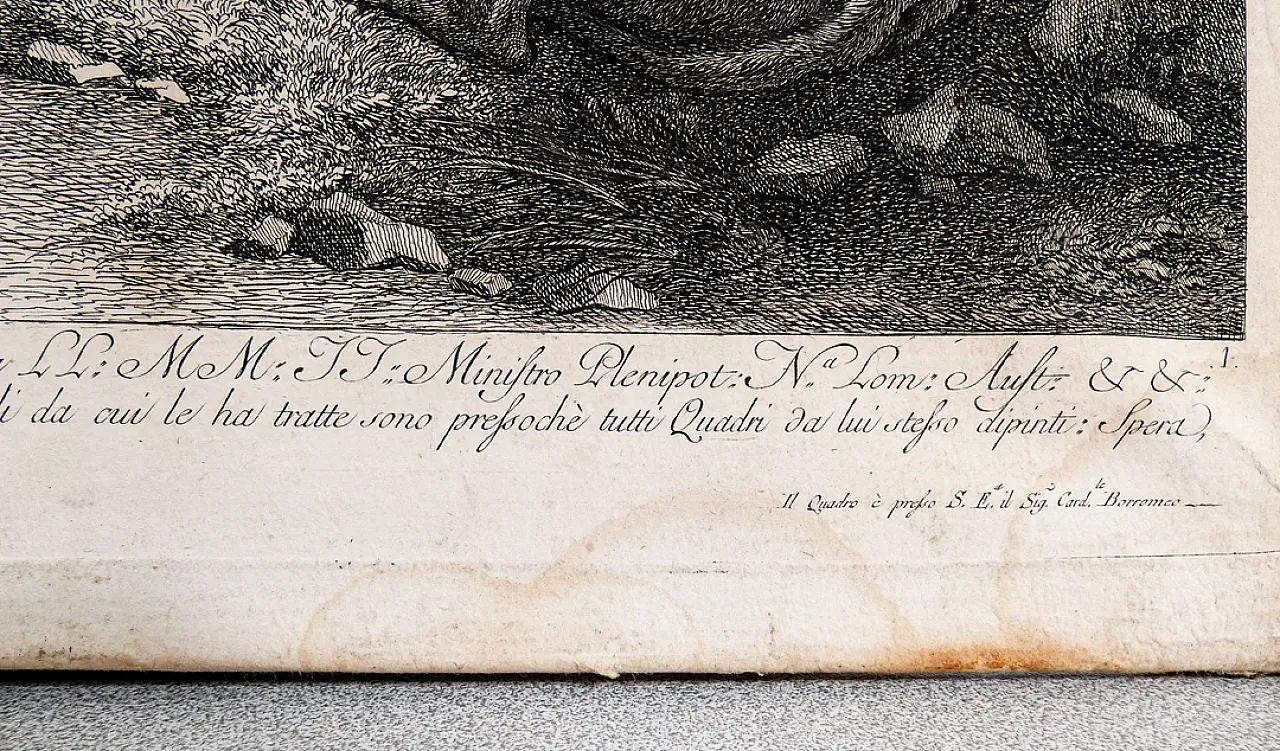 LL: MM: II: Miniſtro Plenipot: N.ª Lom: Auſt: & &: 1.
da cui le ha tratte sono preſsochè tutti Quadri da lui steſso dipinti: Spera,
Il Quadro è preſso S. E.ª il Sig.ʳ Card.ˡᵉ Borromeo